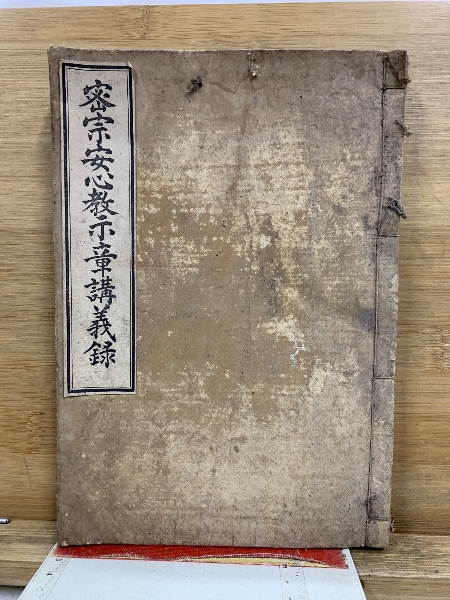 密宗安心教示章講義録